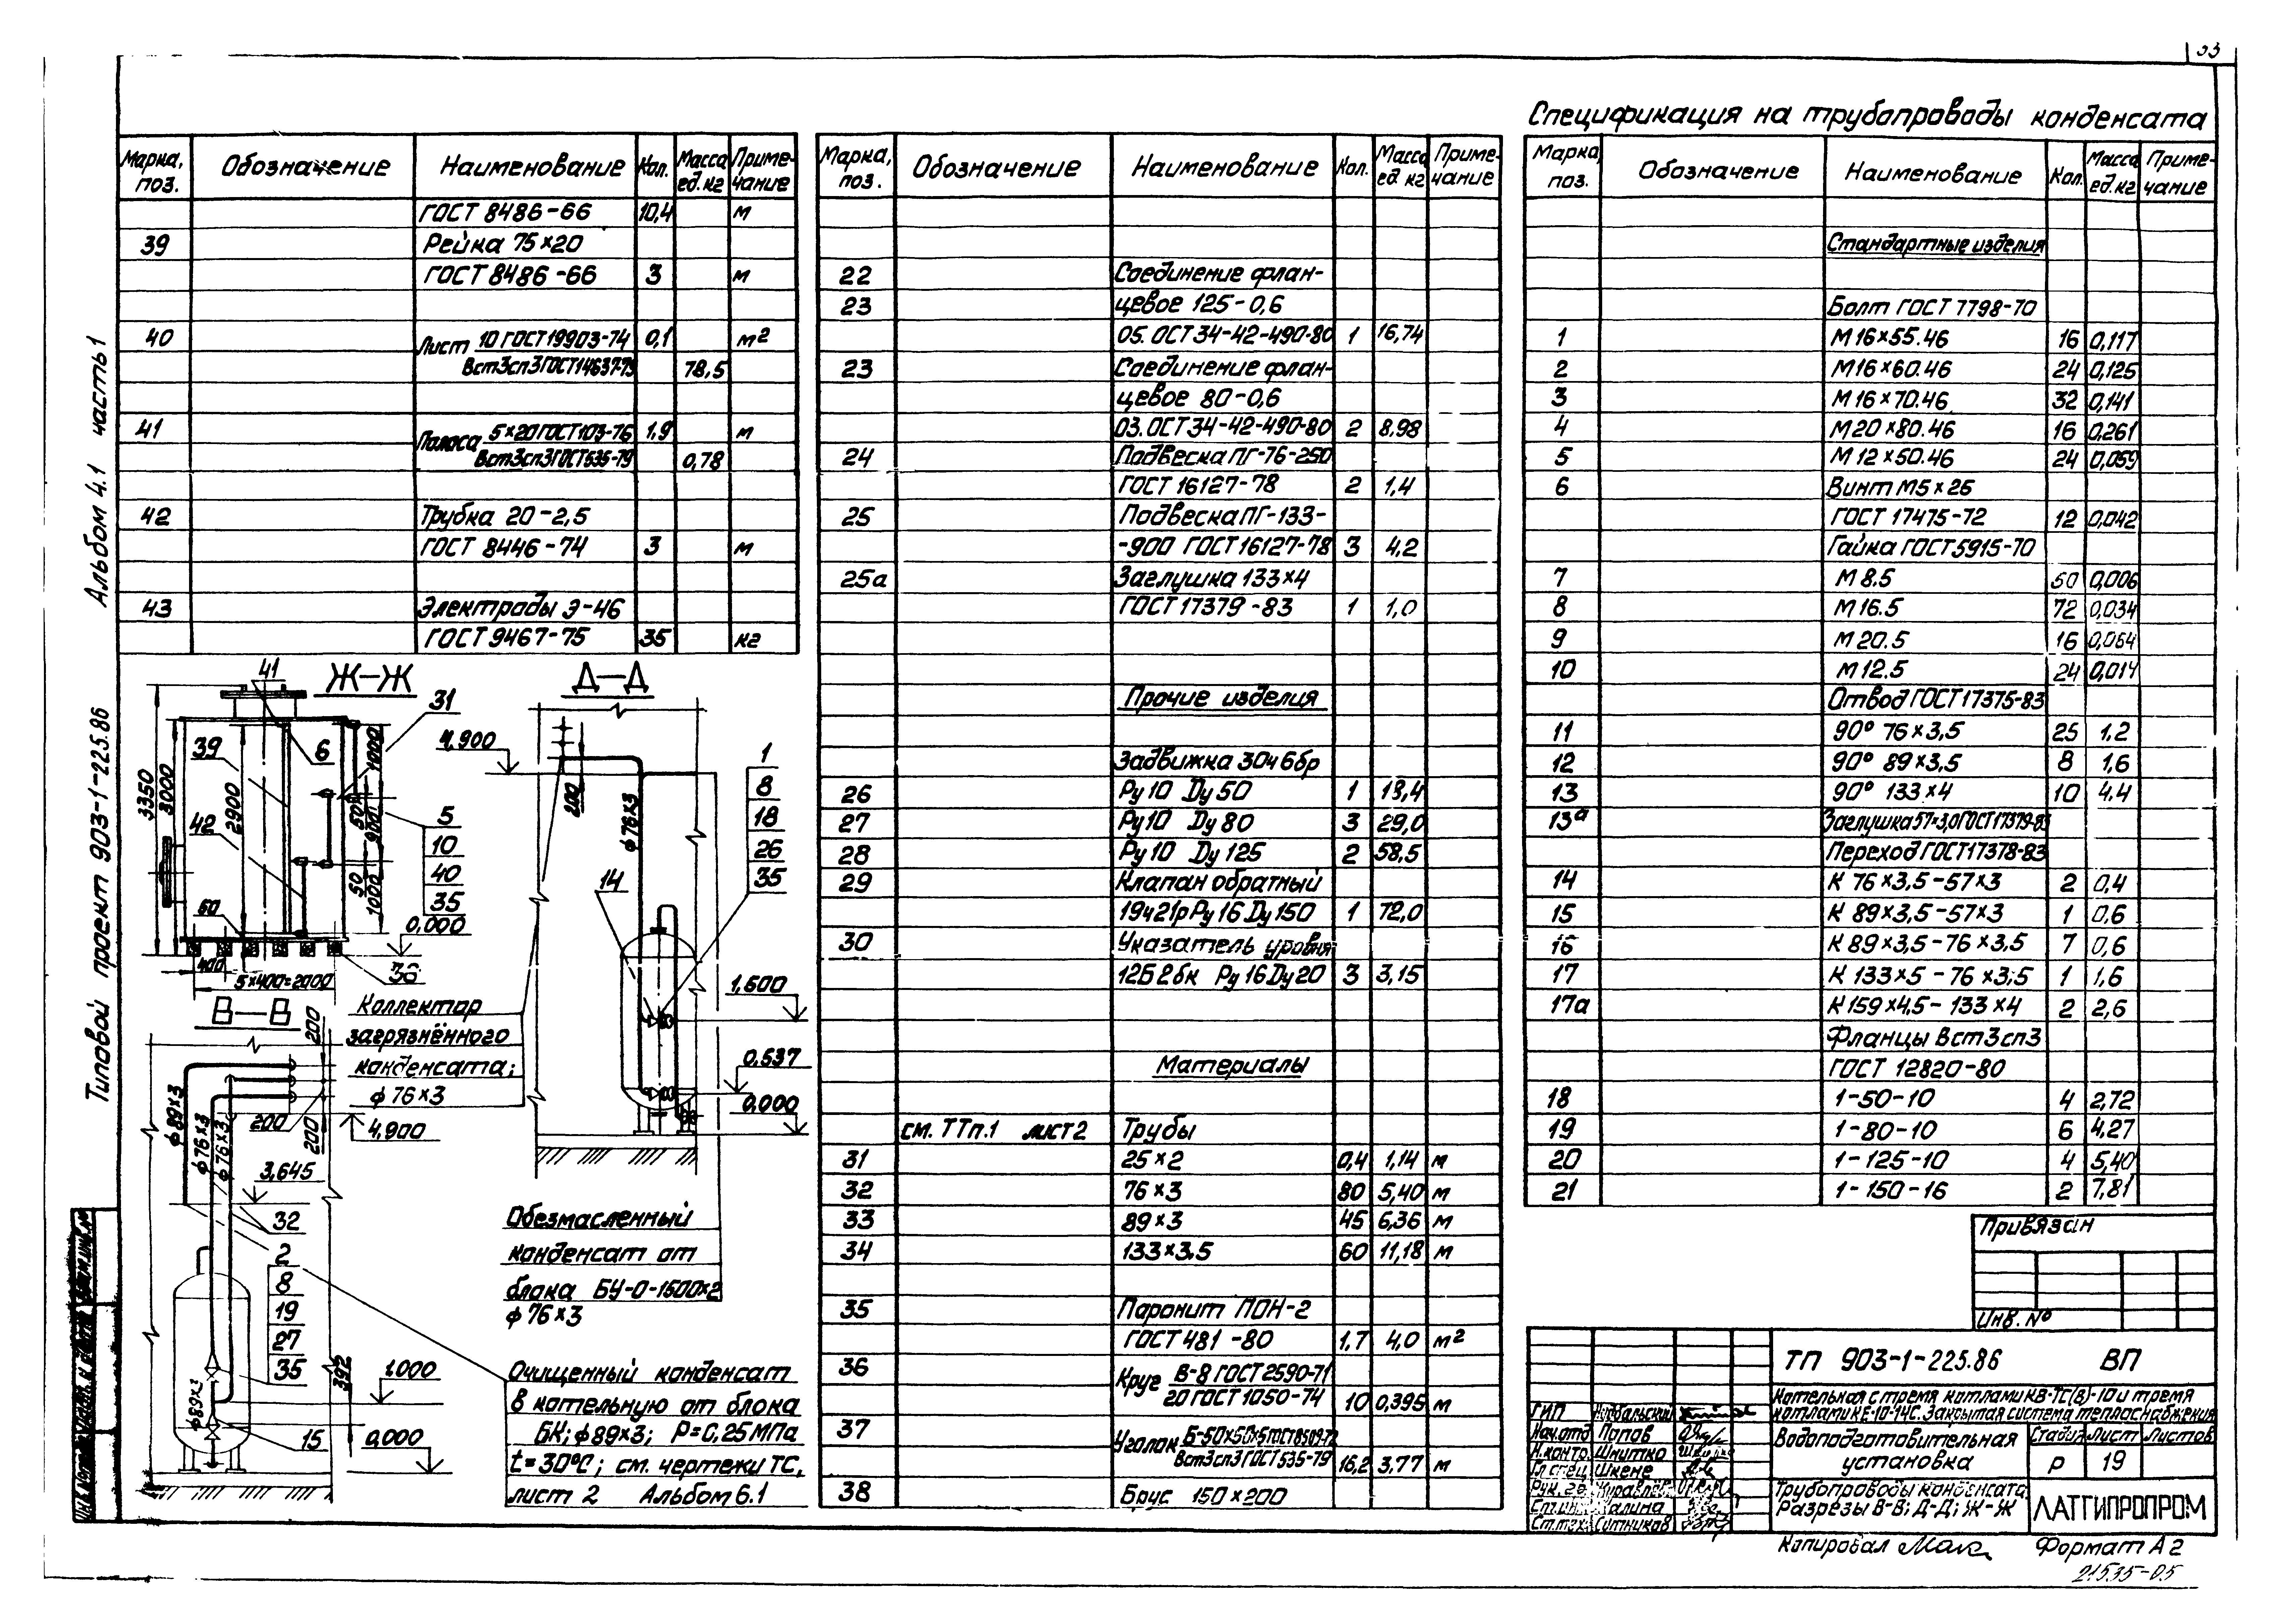 33
Альбом 4.1 часть 1
Типовой проект 903-1-225.86
Спецификация на трубопроводы конденсата
Марка, поз. Обозначение Наименование Кол. Масса ед. кг Приме-чание
ГОСТ 8486-66 10,4 м
39 Рейка 75×20
ГОСТ 8486-66 3 м
40 Лист 10 ГОСТ 19903-74 0,1 м2
Вст3сп3 ГОСТ 14637-79 78,5
41 Полоса 5×20 ГОСТ 103-76 1,9 м
Вст3сп3 ГОСТ 535-79 0,78
42 Трубка 20-2,5
ГОСТ 8446-74 3 м
43 Электроды Э-46
ГОСТ 9467-75 35 кг
Марка, поз. Обозначение Наименование Кол. Масса ед. кг Приме-чание
22 Соединение флан-
23 цевое 125-0,6
05. ОСТ 34-42-490-80 1 16,74
23 Соединение флан-
цевое 80-0,6
03. ОСТ 34-42-490-80 2 8,98
24 Подвеска ПГ-76-250
ГОСТ 16127-78 2 1,4
25 Подвеска ПГ-133-
-900 ГОСТ 16127-78 3 4,2
25а Заглушка 133×4
ГОСТ 17379-83 1 1,0
Прочие изделия
Задвижка 30ч6бр
26 Ру10 Dу50 1 18,4
27 Ру10 Dу80 3 29,0
28 Ру10 Dу125 2 58,5
29 Клапан обратный
19ч21р Ру16 Dу150 1 72,0
30 Указатель уровня
12Б2бк Ру16 Dу20 3 3,15
Материалы
см. ТТп.1 лист 2 Трубы
31 25×2 0,4 1,14 м
32 76×3 80 5,40 м
33 89×3 45 6,36 м
34 133×3.5 60 11,18 м
35 Паронит ПОН-2
ГОСТ 481-80 1,7 4,0 м2
36 Круг В-8 ГОСТ 2590-71
20 ГОСТ 1050-74 10 0,395 м
37 Уголок Б-50×50×5 ГОСТ 8509-72
Вст3сп3 ГОСТ 535-79 16,2 3,77 м
38 Брус 150×200
Марка, поз. Обозначение Наименование Кол. Масса ед. кг Приме-чание
Стандартные изделия
Болт ГОСТ 7798-70
1 М16×55.46 16 0,117
2 М16×60.46 24 0,125
3 М16×70.46 32 0,141
4 М20×80.46 16 0,261
5 М12×50.46 24 0,059
6 Винт М5×25
ГОСТ 17475-72 12 0,042
Гайка ГОСТ 5915-70
7 М8.5 60 0,006
8 М16.5 72 0,034
9 М20.5 16 0,064
10 М12.5 24 0,014
Отвод ГОСТ 17375-83
11 90° 76×3,5 25 1.2
12 90° 89×3,5 8 1,6
13 90° 133×4 10 4.4
13а Заглушка 57×3,0 ГОСТ 17379-83
Переход ГОСТ 17378-83
14 К 76×3,5-57×3 2 0,4
15 К 89×3,5-57×3 1 0,6
16 К 89×3,5-76×3,5 7 0,6
17 К 133×5-76×3,5 1 1,6
17а К 159×4,5-133×4 2 2,6
Фланцы Вст3сп3
ГОСТ 12820-80
18 1-50-10 4 2,72
19 1-80-10 6 4,27
20 1-125-10 4 5,40
21 1-150-16 2 7,81
Ж-Ж
41
31
39
6
3350
3000
2900
1000
50
900
50
1000
42
5
10
40
35
60
0,000
400
5×400=2000
36
Д-Д
4,900
200
φ76×3
1
8
18
26
35
14
1,600
0,537
0,000
Коллектор
загрязнённого
конденсата;
φ76×3
В-В
200
200
200
φ89×3
φ76×3
φ76×3
4,900
3,645
32
2
8
19
27
35
392
1.000
φ89×3
15
0,000
Обезмасленный
конденсат от
блока БУ-0-1600×2
φ76×3
Очищенный конденсат
в котельную от блока
БК; φ89×3; Р=0,25МПа
t=30°С; см. чертежи ТС,
лист 2 Альбом 6.1
Привязан
Инв. №
ТП 903-1-225.86 ВП
Котельная с тремя котлами КВ-ТС(В)-10 и тремя
котлами КЕ-10-14С. Закрытая система теплоснабжения
ГИП
Нач.отд Попов
Н.контр. Шнитко
Гл.спец. Шкене
Ст.инж. Калина
Ст.тех. Ситников
Водоподготовительная
установка
Стадия Лист Листов
Р 19
Трубопроводы конденсата.
Разрезы В-В; Д-Д; Ж-Ж
ЛАТГИПРОПРОМ
Копировал Формат А2
21535-05